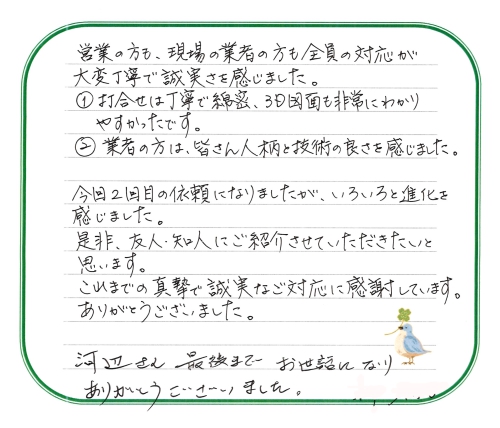 営業の方も、現場の業者の方も全員の対応が
大変丁寧で誠実さを感じました。
①打合せは丁寧で綿密、3D図面も非常にわかり
やすかったです。
②業者の方は、皆さん人柄と技術の良さを感じました。
今回2回目の依頼になりましたが、いろいろと進化を
感じました。
是非、友人・知人にご紹介させていただきたいと
思います。
これまでの真摯で誠実なご対応に感謝しています。
ありがとうございました。
河辺さん 最後まで お世話になり
ありがとうございました。